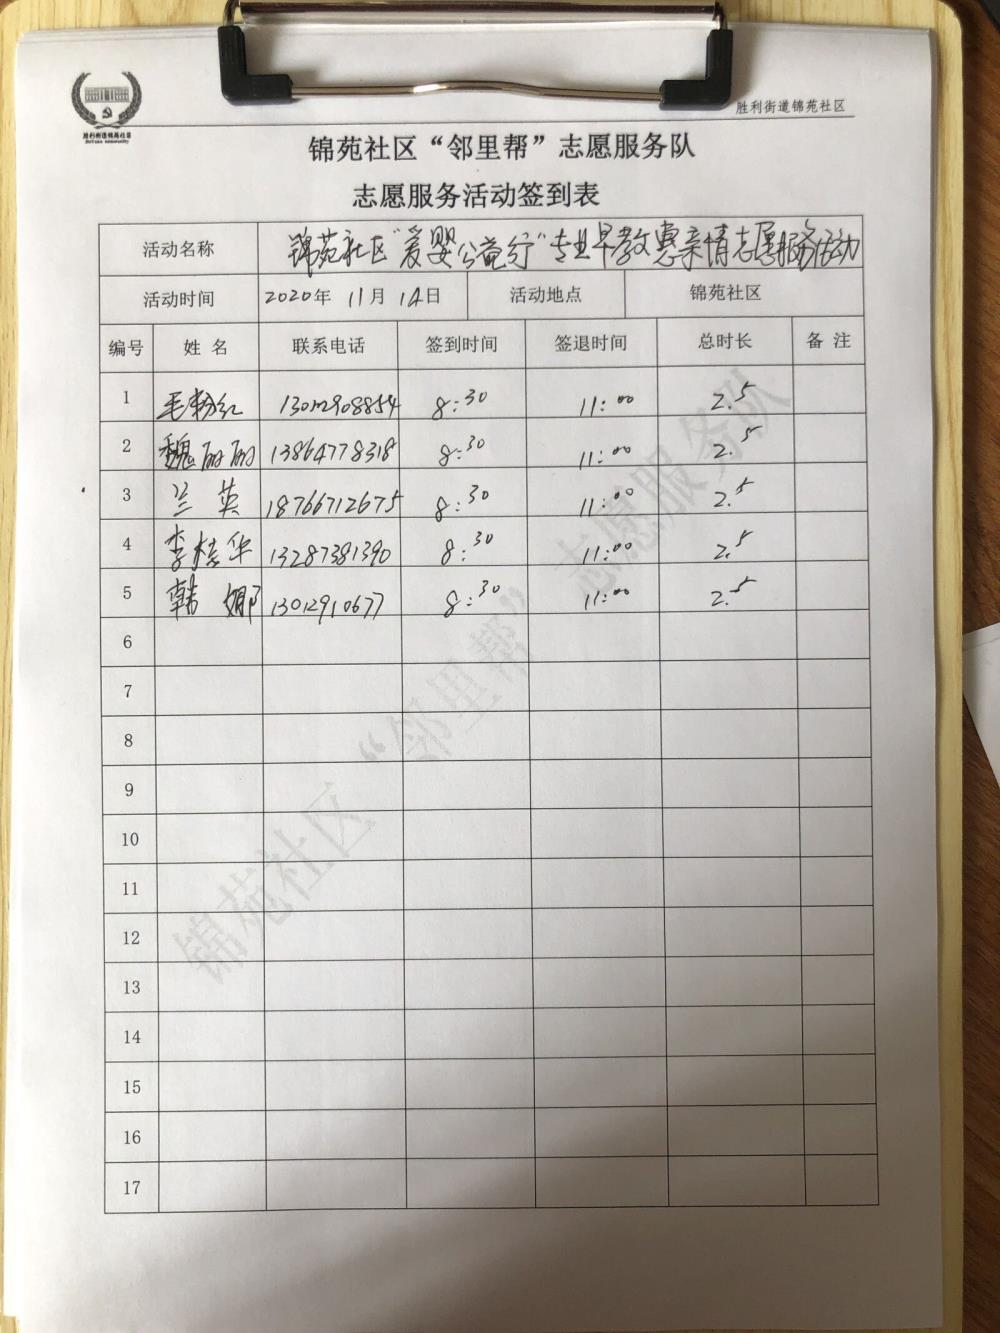 胜利街道锦苑社区
胜利街道锦苑社区
锦苑社区“邻里帮”志愿服务队
志愿服务活动签到表
活动名称 锦苑社区“爱婴公益行”专业早教惠亲情志愿服务活动
活动时间 2020年 11月 14日 活动地点 锦苑社区
编号 姓名 联系电话 签到时间 签退时间 总时长 备注
1 毛粉红 13012908854 8:30 11:00 2.5
2 魏丽丽 13864778318 8:30 11:00 2.5
3 兰英 18766712675 8:30 11:00 2.5
4 李桂华 13287381390 8:30 11:00 2.5
5 韩娜 13012910677 8:30 11:00 2.5
6
7
8
9
10
11
12
13
14
15
16
17
锦苑社区“邻里帮”志愿服务队